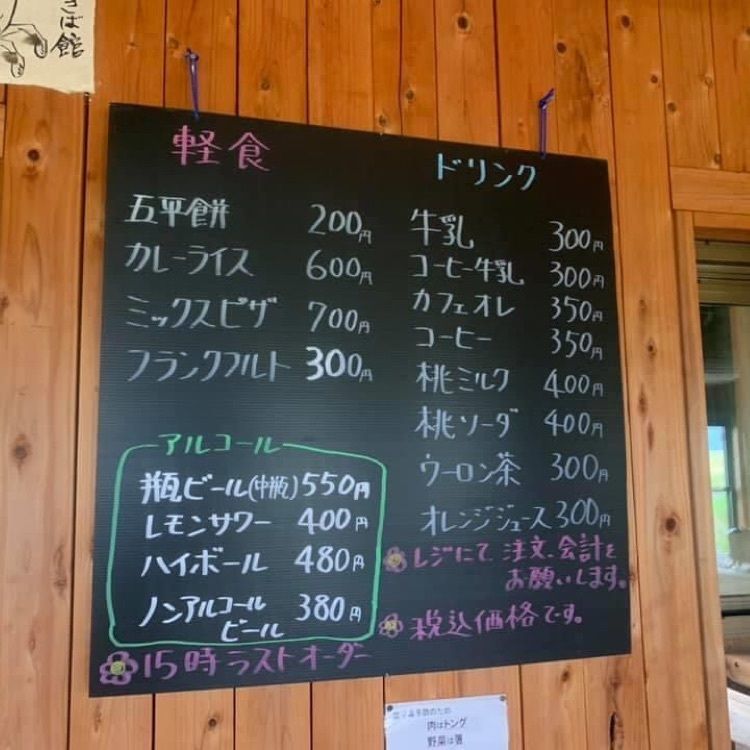 きば館
軽食
五平餅 200円
カレーライス 600円
ミックスピザ 700円
フランクフルト 300円
アルコール
瓶ビール(中瓶) 550円
レモンサワー 400円
ハイボール 480円
ノンアルコール
ビール 380円
15時ラストオーダー
ドリンク
牛乳 300円
コーヒー牛乳 300円
カフェオレ 350円
コーヒー 350円
桃ミルク 400円
桃ソーダ 400円
ウーロン茶 300円
オレンジジュース 300円
レジにて注文、会計を
お願いします。
税込価格です。
肉はトング
野菜は箸